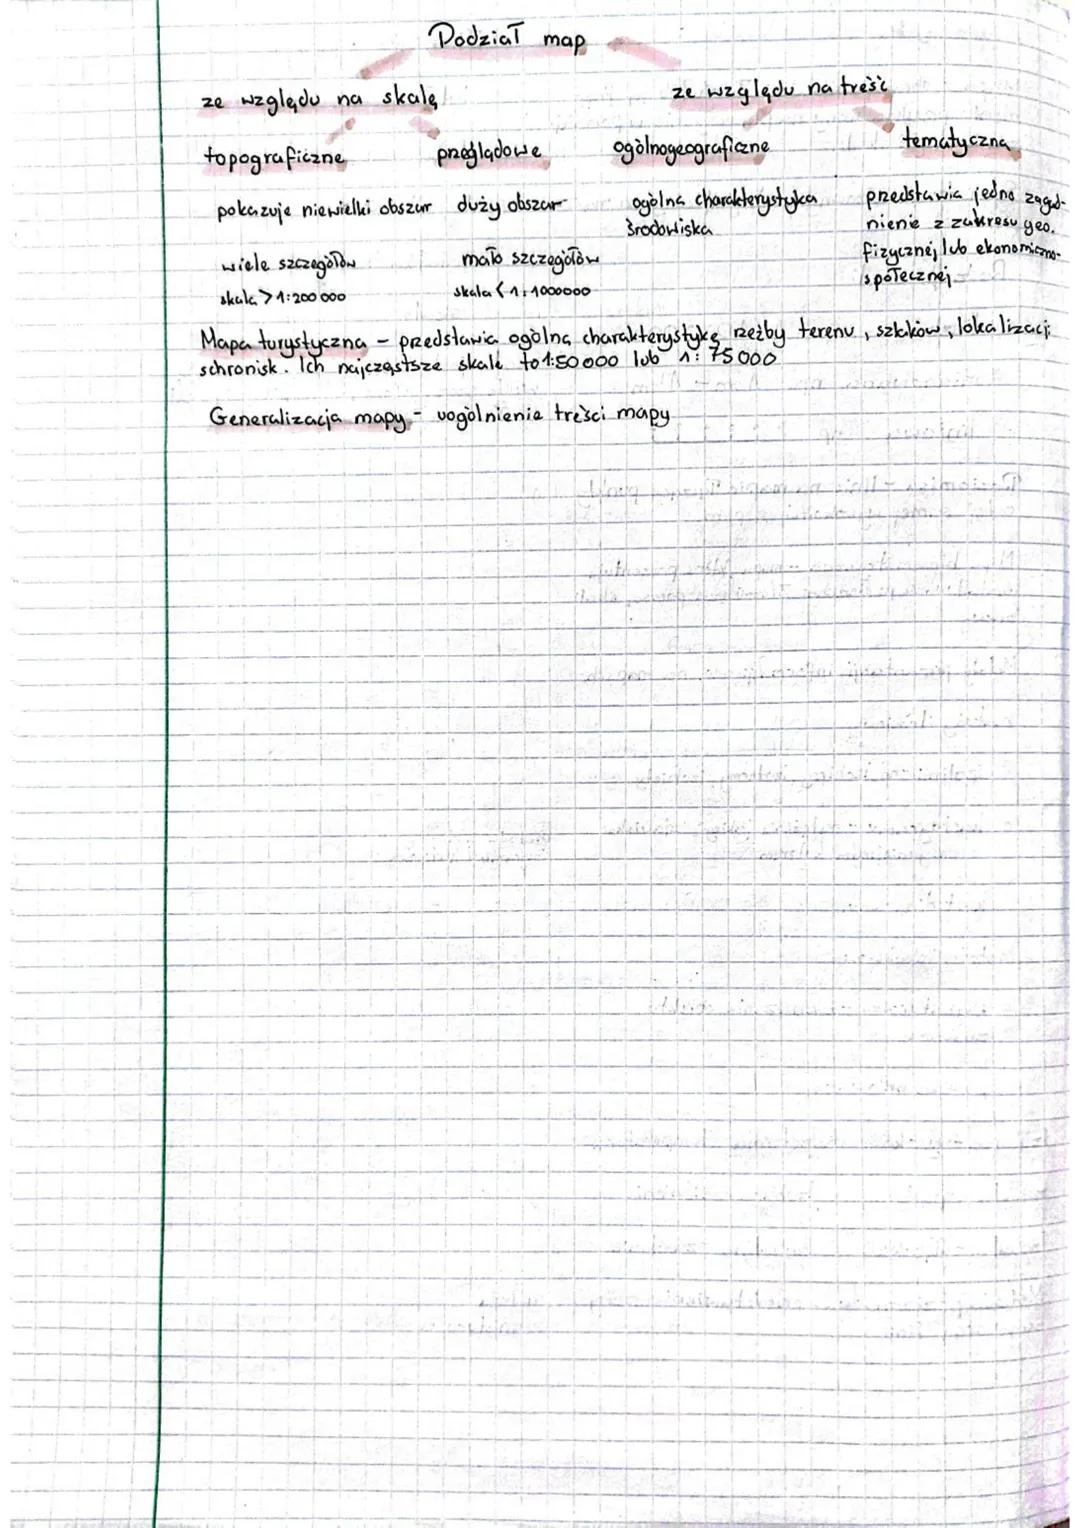 Podział map
ze względu na skalę
ze względu na treść
topograficzne
przeglądowe
ogólnogeograficzne
tematyczna
pokazuje niewielki obszar
duży obszar
ogólna charakterystyka
środowiska
przedstawia jedno zagad-
nienie z zakresu geo.
fizycznej lub ekonomiczno-
społecznej
wiele szczegółów
mało szczegółów
skala > 1:200 000
skala < 1:1000000
Mapa turystyczna - przedstawia ogólną charakterystykę rzeźby terenu, szlaków, lokalizacji
schronisk. Ich najczęstsze skale to 1:50 000 lub 1:75 000
Generalizacja mapy - uogólnienie treści mapy